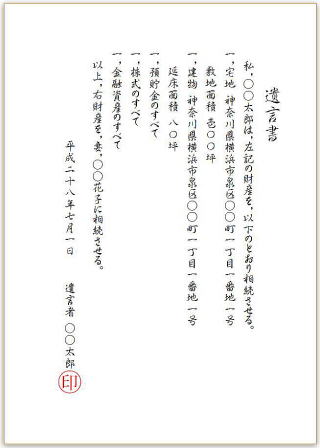 遺言書
私、〇〇太郎は、左記の財産を、以下のとおり相続させる。
一、宅地 神奈川県横浜市泉区〇〇町一丁目一番地一号
敷地面積 壱〇〇坪
一、建物 神奈川県横浜市泉区〇〇町一丁目一番地一号
延床面積 八〇坪
一、預貯金のすべて
一、株式のすべて
一、金融資産のすべて
以上、右財産を、妻、〇〇花子に相続させる。
平成二十八年七月一日
遺言者 〇〇太郎 印